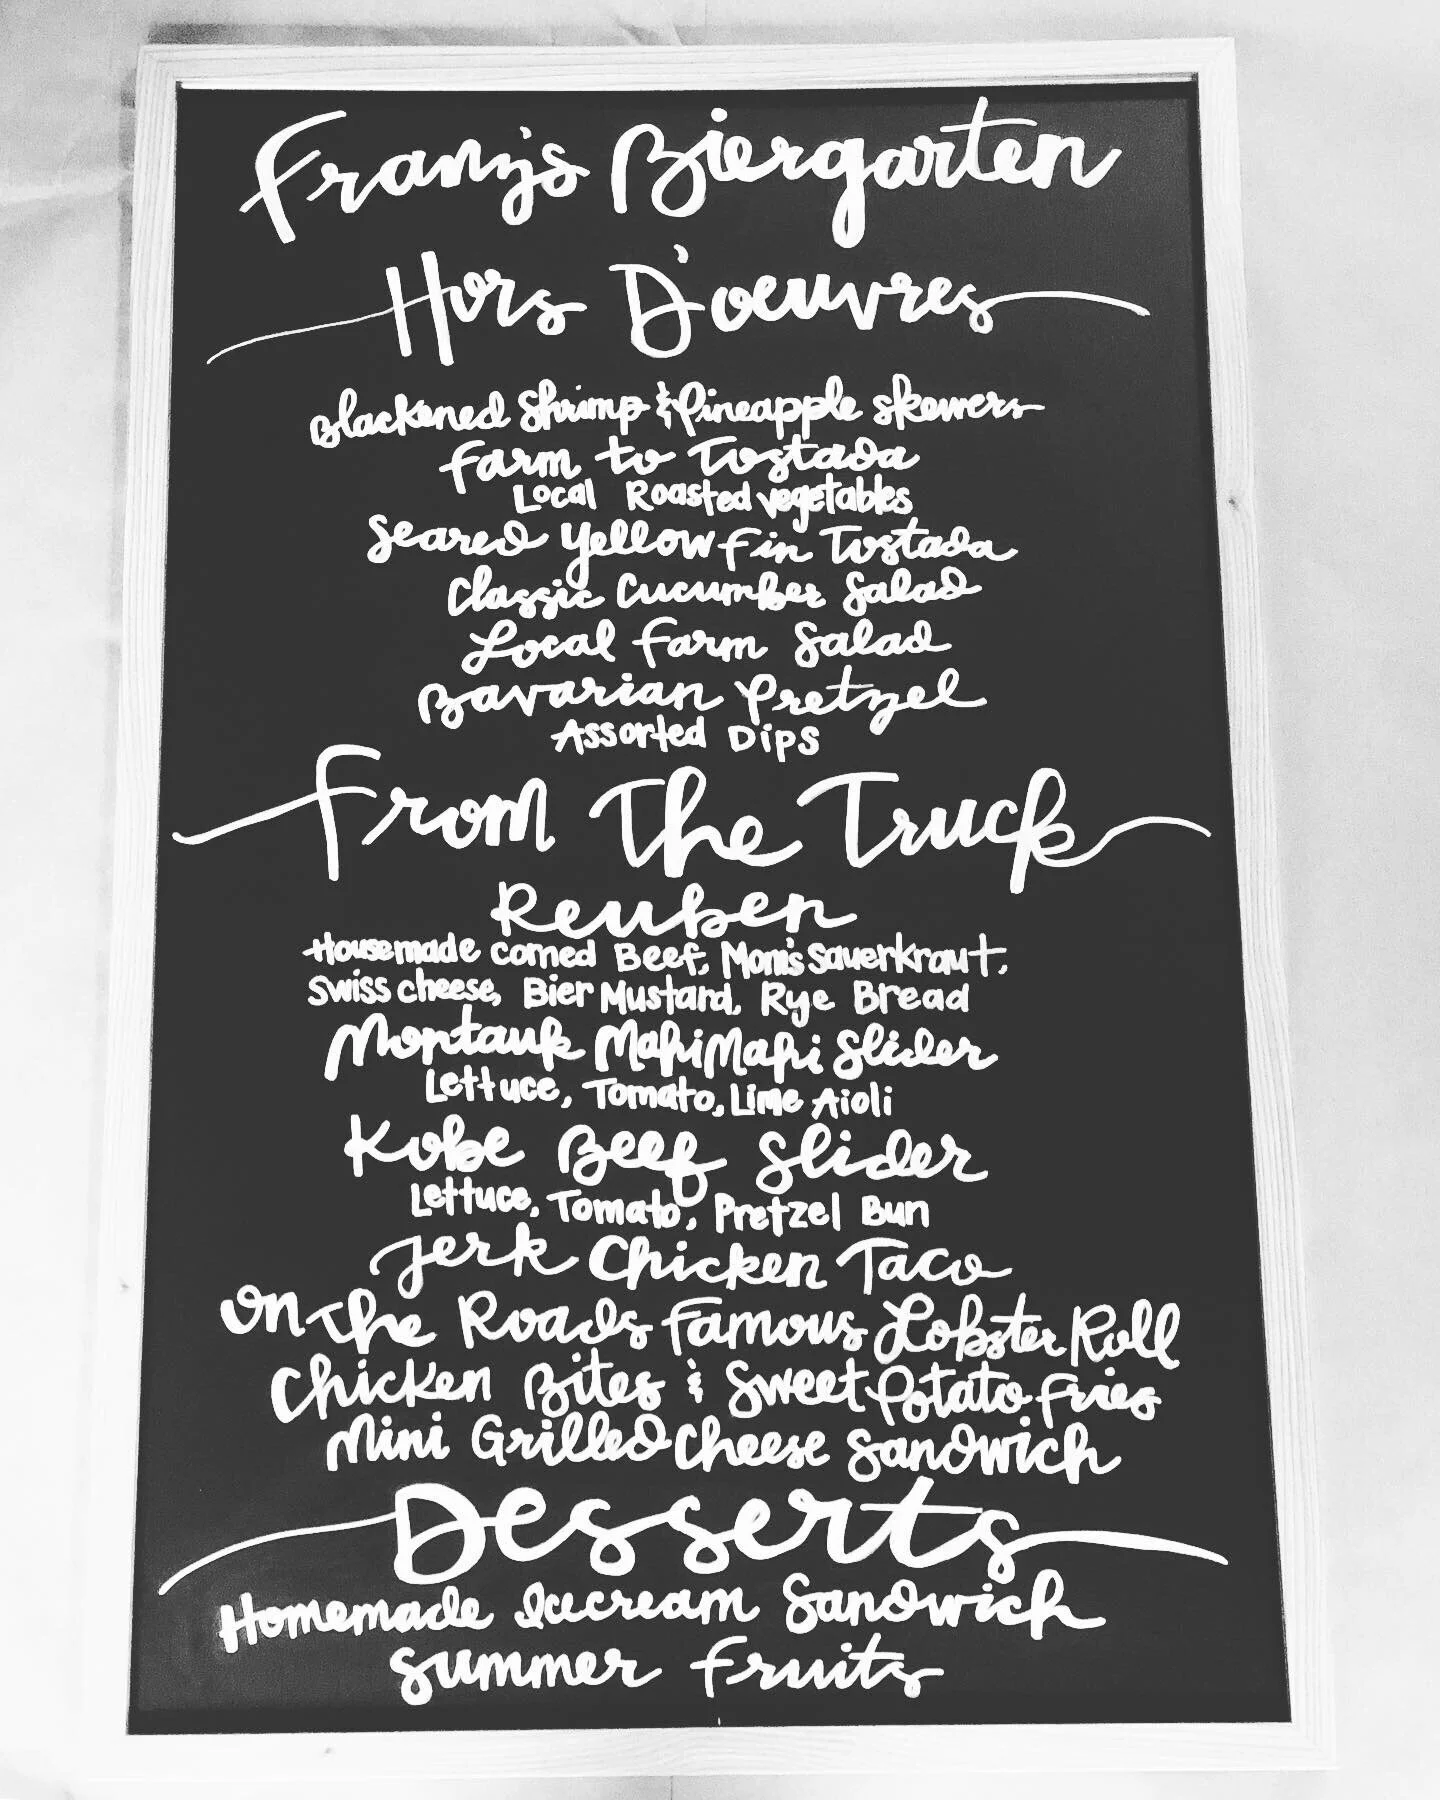 Franz's Biergarten
Hors D'oeuvres
Blackened Shrimp & Pineapple Skewers
Farm to Tostada
Local Roasted vegetables
Seared Yellow Fin Tostada
Classic Cucumber Salad
Local Farm Salad
Bavarian Pretzel
Assorted Dips
From The Truck
Reuben
Housemade Corned Beef, Mom's Sauerkraut,
Swiss cheese, Bier Mustard, Rye Bread
Montauk MahiMahi Slider
Lettuce, Tomato, Lime Aioli
Kobe Beef Slider
Lettuce, Tomato, Pretzel Bun
Jerk Chicken Taco
On The Roads Famous Lobster Roll
Chicken Bites & Sweet Potato Fries
Mini Grilled Cheese Sandwich
Desserts
Homemade Icecream Sandwich
Summer Fruits